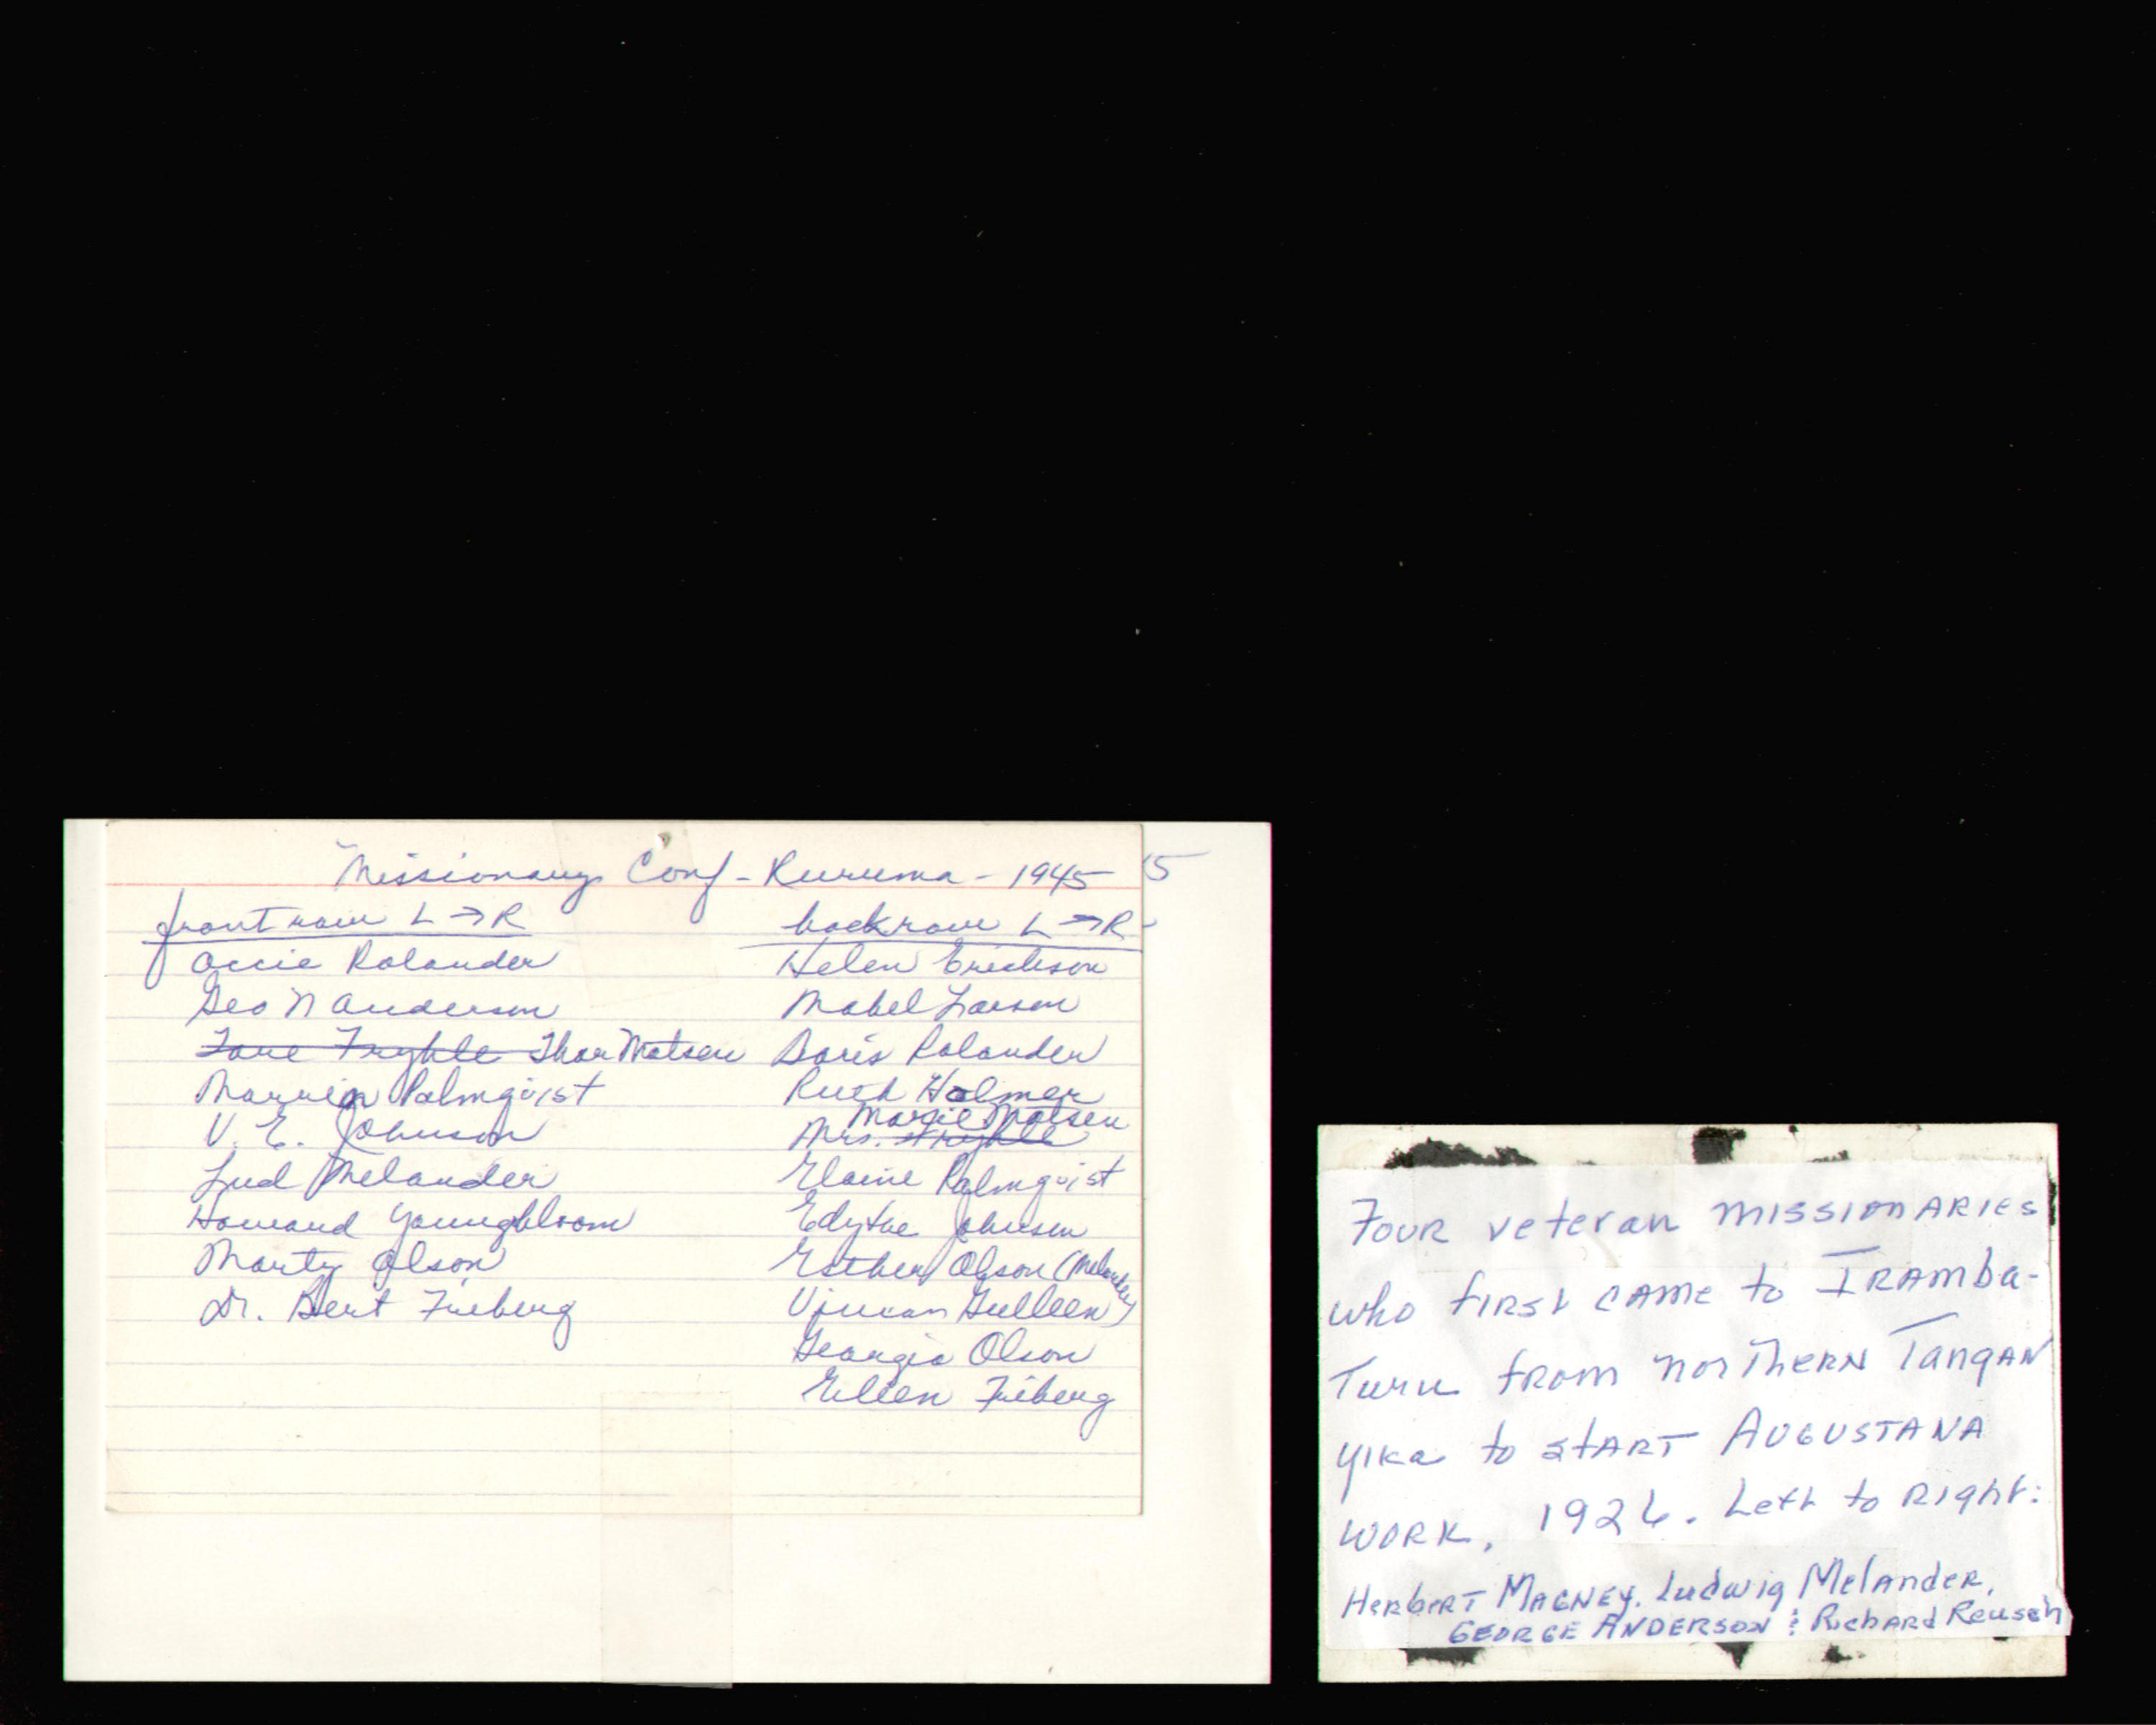 Missionary Conf - Kuruma - 1945 5
front row L → R
Occie Rolander
Geo N Anderson
Fave Fryhle Thor Matsen
Marvin Palmquist
V. E. Johnson
Lud Melander
Howard Youngbloom
Marty Olson
Dr. Bert Frieberg
back row L → R
Helen Erickson
Mabel Larson
Doris Rolander
Ruth Holmer
Margie Matsen
Mrs. Fryhle
Elaine Palmquist
Edythe Johnson
Esther Olson (Melander)
Vivian Gulleen
Georgia Olson
Ellen Frieberg
Four veteran missionaries
who first came to Iramba-
Turu from northern Tangan
yika to start Augustana
work, 1926. Left to Right:
Herbert Magney, Ludwig Melander,
George Anderson & Richard Reusch